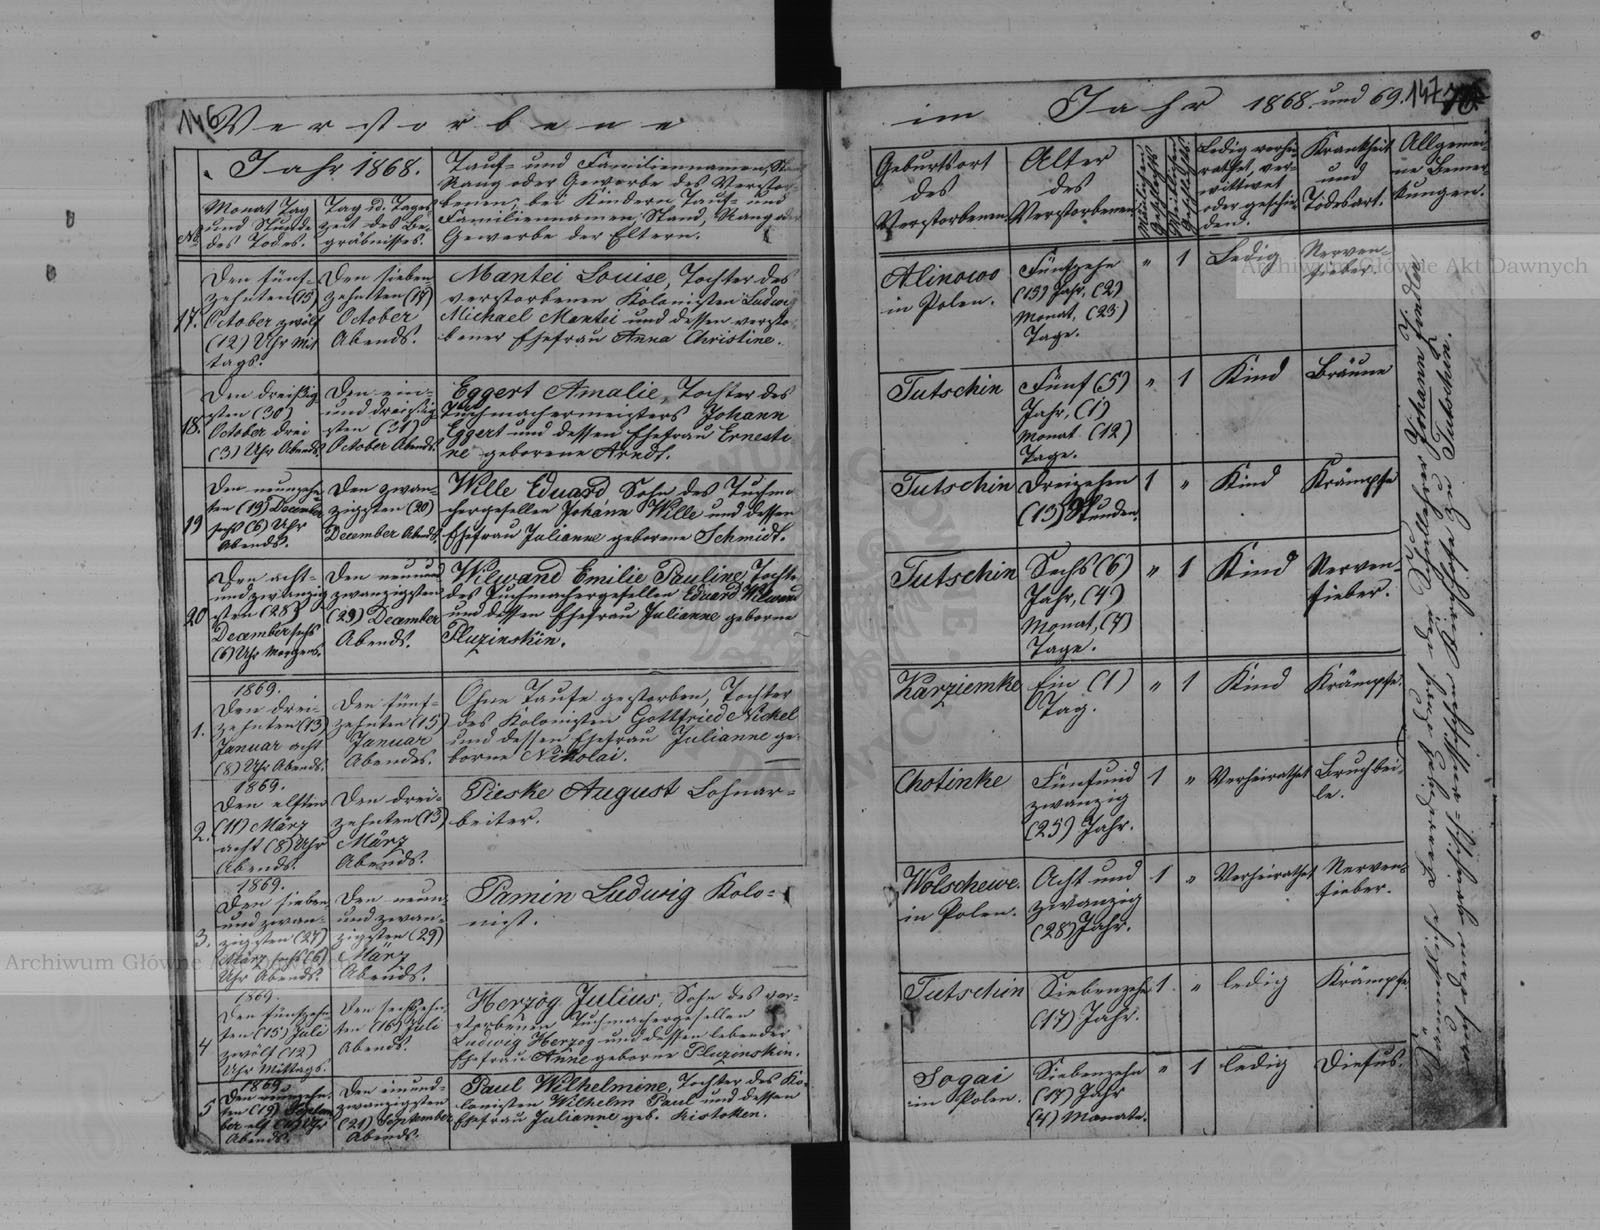 146 Verstorbene
Jahr 1868.
No
Monat Tag
und Stunde
des Todes.
Tag u. Tages
zeit des Be-
gräbnisses.
Tauf- und Familiennamen, Stand
Rang oder Gewerbe des Verstor-
benen; bei Kindern Tauf- und
Familiennamen Stand, Rang oder
Gewerbe der Eltern.
17.
Den fünf-
zehnten (15)
October zwölf
(12) Uhr Mit
tags.
Den sieben-
zehnten (17)
October
Abends.
Mantei Louise, Tochter des
verstorbenen Kolonisten Ludwig
Michael Mantei und dessen versto
bener Ehefrau Anna Christine.
18.
Den dreißig
sten (30)
October drei
(3) Uhr Abends.
Den ein-
und dreißig
sten (31)
October Abends.
Eggert Amalie, Tochter des
Tuchmachermeisters Johann
Eggert und dessen Ehefrau Ernesti
ne geborene Arndt.
19
Den neunzehn
ten (19) December
sechs (6) Uhr
Abends.
Den zwan-
zigsten (20)
December Abends.
Wille Eduard Sohn des Tuchma
chergesellen Johann Wille und dessen
Ehefrau Julianne geborene Schmidt.
20
Den acht-
und zwanzig
sten (28)
December sechs
(6) Uhr Morgens.
Den neunund
zwanzigsten
(29) December
Abends.
Wilwand Emilie Pauline, Tochte
des Tuchmachergesellen Eduard Wilwand
und dessen Ehefrau Julianne geborne
Pluzinskin.
1.
1869.
Den drei-
zehnten (13)
Januar acht
(8) Uhr Abends.
Den fünf-
zehnten (15)
Januar
Abends.
Ohne Taufe gestorben, Tochter
des Kolonisten Gottfried Nickel
und dessen Ehefrau Julianne ge-
borne Nikolai.
2.
1869.
Den elften
(11) März
acht (8) Uhr
Abends.
Den drei-
zehnten (13)
März
Abends.
Pieske August Lohnar-
beiter.
3.
1869.
Den sieben
und zwan-
zigsten (27)
März sechs (6)
Uhr Abends.
Den neun-
und zwan-
zigsten (29)
März
Abends.
Pamin Ludwig Kolo-
nist.
4
1869.
Den fünfzehn
ten (15) Juli
zwölf (12)
Uhr Mittags.
Den sechzehn-
ten (16) Juli
Abends.
Herzog Julius, Sohn des ver-
storbenen Tuchmachergesellen
Ludwig Herzog und dessen lebender
Ehefrau Anne geborne Pluzinskin.
5
1869
Den neunzehn-
ten (19) Septem
ber elf (11) Uhr
Abends.
Den einund-
zwanzigsten
(21) September
Abends.
Paul Wilhelmine, Tochter des Ko-
lonisten Wilhelm Paul und dessen
Ehefrau Julianne geb.
im Jahr 1868 und 69. 147
Geburtsort
des
Verstorbenen
Alter
des
Verstorbenen
Männlichen
Geschlechts
Weiblichen
Geschlechts.
Ledig verhei-
rathet, ver-
wittwet
oder geschie-
den.
Krankheit
und
Todesart.
Allgemei-
ne Bemer-
kungen.
Alinowo
in Polen.
Fünfzehn
(15) Jahr, (2)
Monat, (23)
Tage.
" 1 Ledig
Nerven-
fieber.
Tutschin
Fünf (5)
Jahr, (1)
Monat (12)
Tage.
" 1 Kind Bräune
Tutschin
Dreizehen
(13) Stunden.
1 " Kind Krämpfe
Tutschin
Sechs (6)
Jahr, (4)
Monat, (7)
Tage.
" 1 Kind
Nerven-
fieber.
Karziemke
Ein (1)
Tag.
" 1 Kind Krämpfe.
Chotinke
Fünfund
zwanzig
(25) Jahr.
1 " Verheirathet
Bruchbei-
le.
Wolschewe.
in Polen.
Acht und
zwanzig
(28) Jahr.
1 " Verheirathet
Nerven-
fieber.
Tutschin
Siebenzehn
(17) Jahr.
1 " ledig Krämpfe
Sogai
in Polen.
Siebenzehn
(17) Jahr
(4) Monate.
" 1 ledig Diefus.
Sämmtliche Beerdigt durch den Schullehrer Johann Zindler
auf dem griechisch-russischen Kirchhofe zu Tutschin.
Archiwum Główne Akt Dawnych
Archiwum Główne